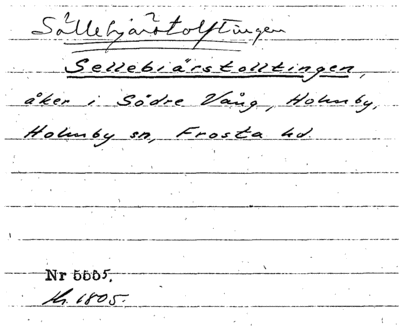 Sällebjärstolftingen
Sellebiärstolltingen,
åker i Södre Vång, Holmby,
Holmby sn, Frosta hd.
Nr 5555.
1805.